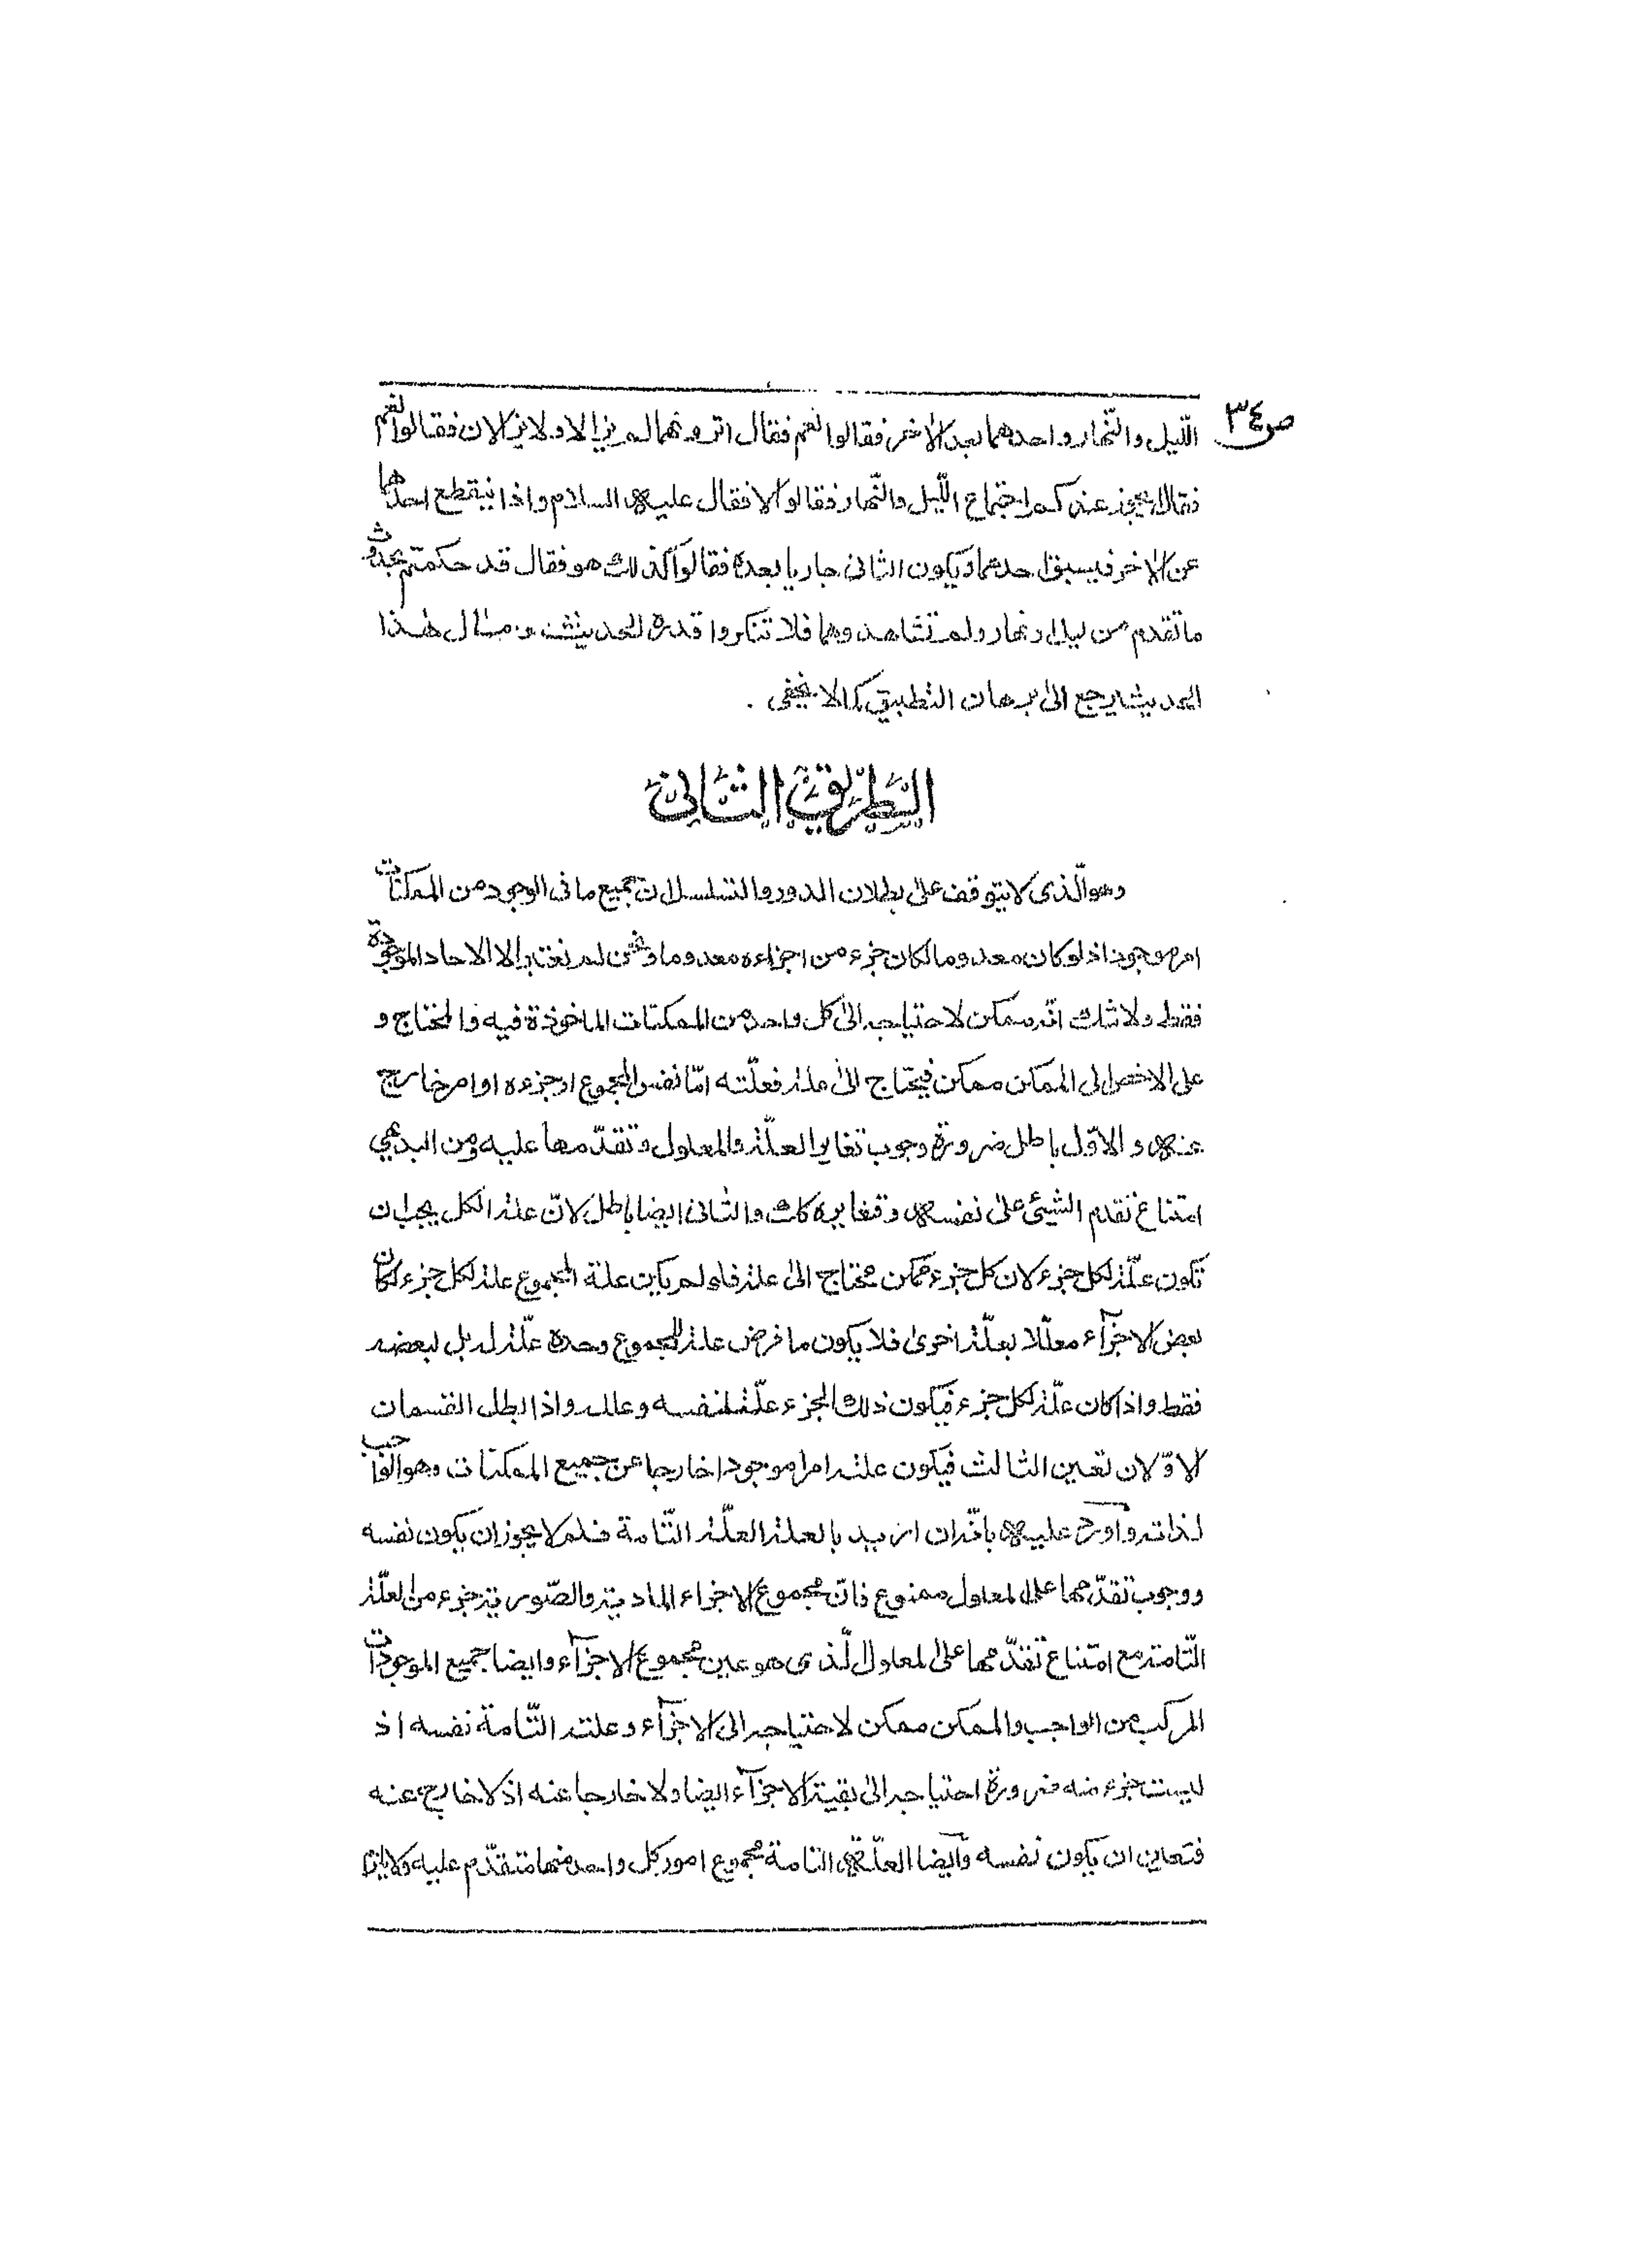 ص ٣٤
اللّيل والنّهار واحدهما بعد الاخر فقالوا نعم فقال اترونهما لم يزالا ولا يزالان فقالوا نعم
فقال ايجوز عندكم اجتماع اللّيل والنّهار فقالوا لا فقال عليه السلام واذا ينقطع احدهما
عن الاخر فيسبق احدهما ويكون الثانى جاريا بعده فقالوا كذلك هو فقال قد حكمتم بحدوث
ما تقدم من ليل ونهار ولم تشاهدوهما فلا تنكروا قدرة الحديث ومثال هٰذا
الحديث يرجع الىٰ برهان التطبيق كما لا يخفى .
الطّريق الثّانى
وهو الّذى لا يتوقف علىٰ بطلان الدور والتسلسل انّ جميع ما فى الوجود من الممكنات
امر موجود اذ لو كان معدوما لكان جزء من اجزاءه معدوما ونحن لم نعتبر الا الاحاد الموجودة
فقط ولا شك انّه ممكن لاحتياجه الىٰ كل واحد من الممكنات الماخوذة فيه والمحتاج و
على الاخص الى الممكن ممكن فيحتاج الىٰ علة فعلّته امّا نفس المجموع او جزءه او امر خارج
عنه والاوّل باطل ضرورة وجوب تغاير العلّة والمعلول وتقدّمها عليه ومن البديهي
امتناع تقدم الشيئى علىٰ نفسه وتغايره كك والثانى ايضا باطل لانّ علة الكل يجب ان
تكون علّة لكل جزء لان كل جزء ممكن محتاج الىٰ علة فلو لم يكن علة المجموع علة لكل جزء لكان
بعض الاجزآء معلّلا بعلّة اخرىٰ فلا يكون ما فرض علة للمجموع وحده علّة له بل لبعضه
فقط واذا كان علّة لكل جزء فيكون ذلك الجزء علّة لنفسه وعلله واذا بطل القسمان
الاوّلان تعين الثالث فيكون علته امرا موجودا خارجا عن جميع الممكنات وهو الواجب
لذاته واورد عليه بانّه ان اريد بالعلة العلّة التّامة فلم لا يجوز ان يكون نفسه
ووجوب تقدّمها على المعلول ممنوع فانّ مجموع الاجزاء المادية والصّورية جزء من العلّة
التّامة مع امتناع تقدّمها على المعلول الّذى هو عين مجموع الاجزآء وايضا جميع الموجودات
المركب من الواجب والممكن ممكن لاحتياجه الى الاجزآء وعلته التّامة نفسه اذ
ليست جزء منه ضرورة احتياجه الىٰ بقية الاجزآء ايضا ولا خارجا عنه اذ لا خارج عنه
فتعين ان يكون نفسه وآيضا العلّة التامة مجموع امور كل واحد منها متقدّم عليه ولا